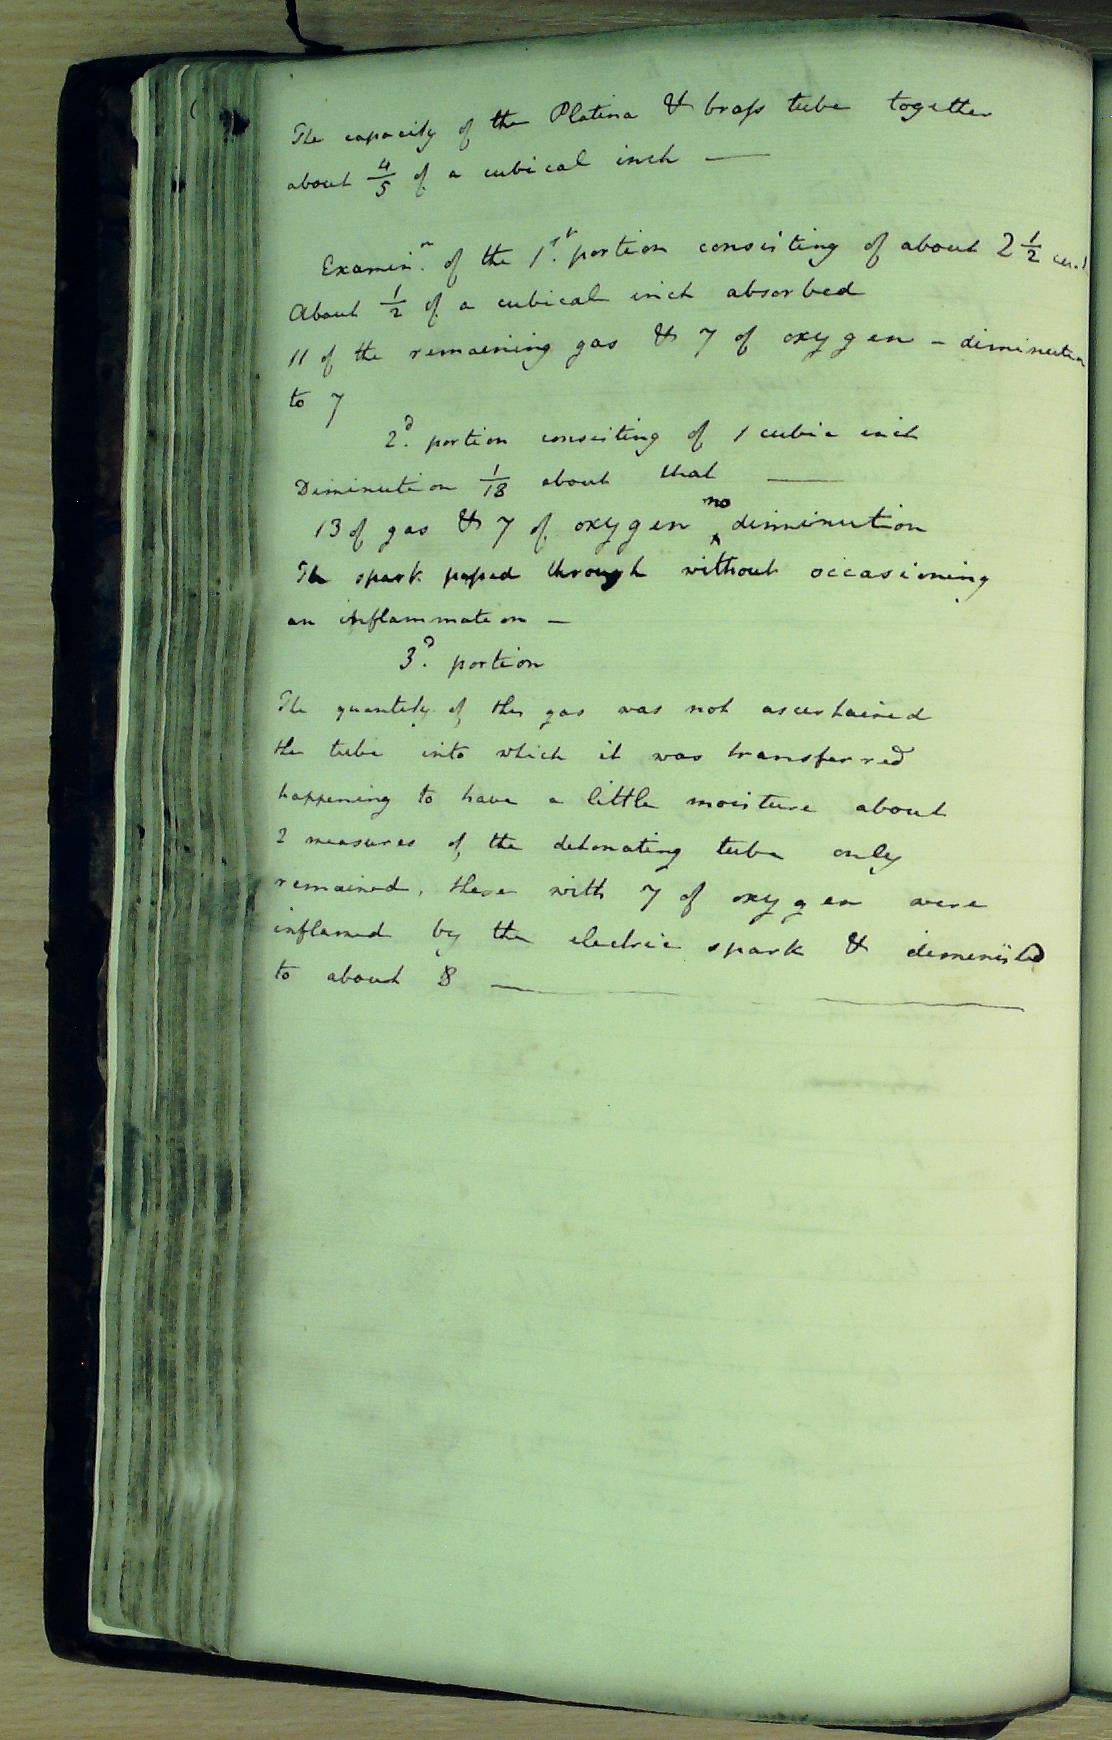 The capacity of the Platina & brass tube together
about 4/5 of a cubical inch —
Examin.n of the 1.st portion consisting of about 2 1/2 cu.I
About 1/2 of a cubical inch absorbed
11 of the remaining gas & 7 of oxygen – diminution
to 7
2.d portion consisting of 1 cubic inch
Diminution 1/18 about that —
13 of gas & 7 of oxygen ^no diminution
The spark passed through without occasioning
an inflammation –
3.d portion
The quantity of this gas was not ascertained
the tube into which it was transferred
happening to have a little moisture about
2 measures of the detonating tube only
remained, these with 7 of oxygen were
inflamed by the electric spark & diminished
to about 8 — —